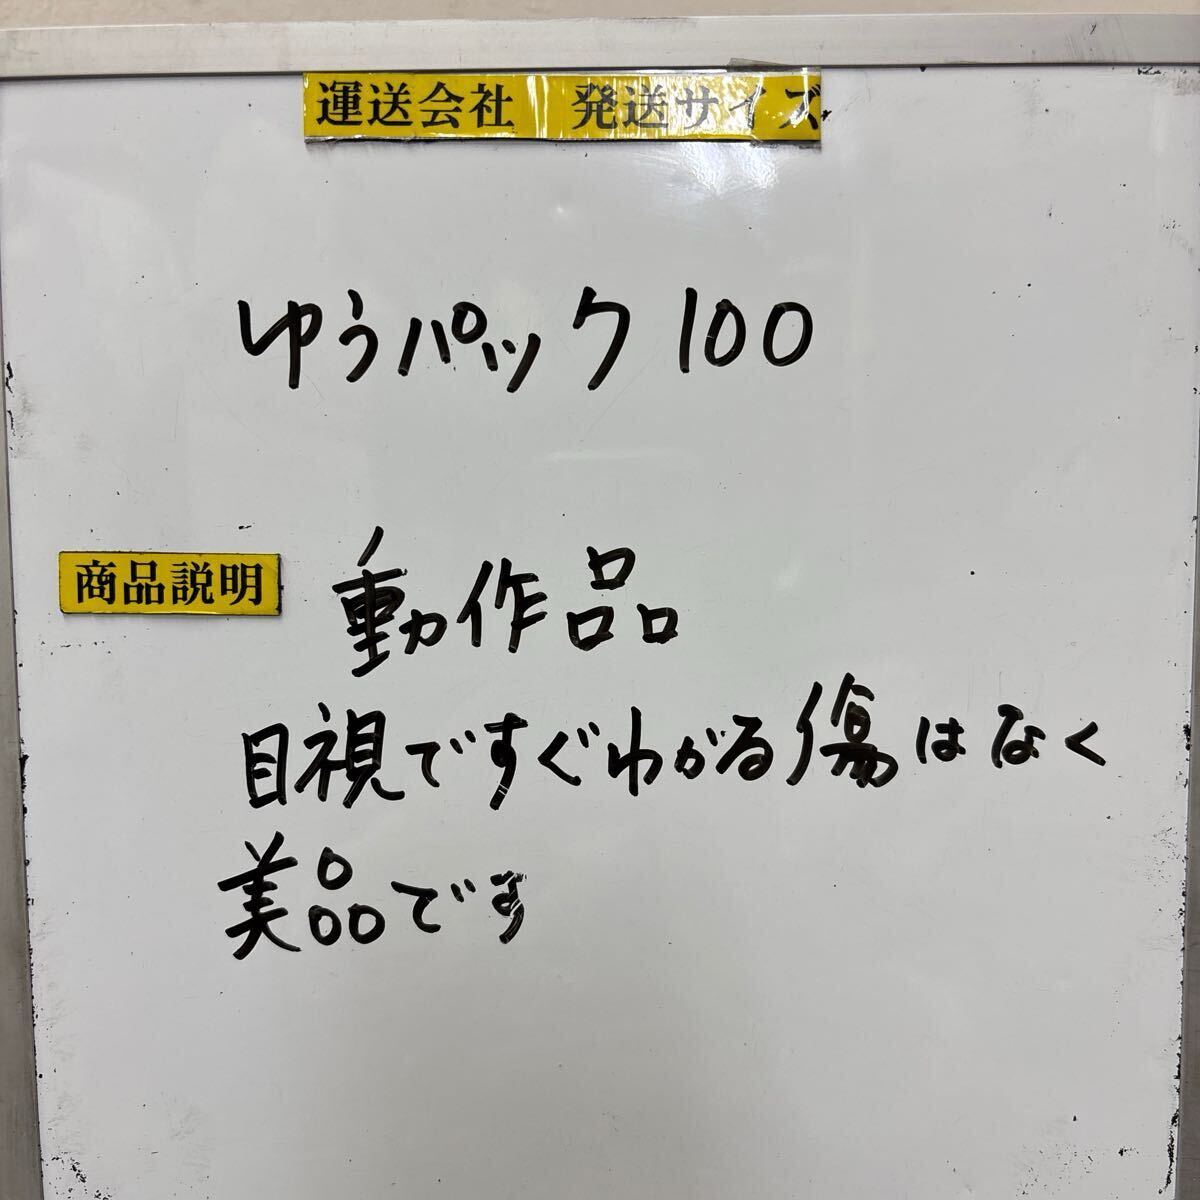 運送会社　発送サイズ
ゆうパック 100
商品説明　動作品
目視ですぐわかる傷はなく
美品です